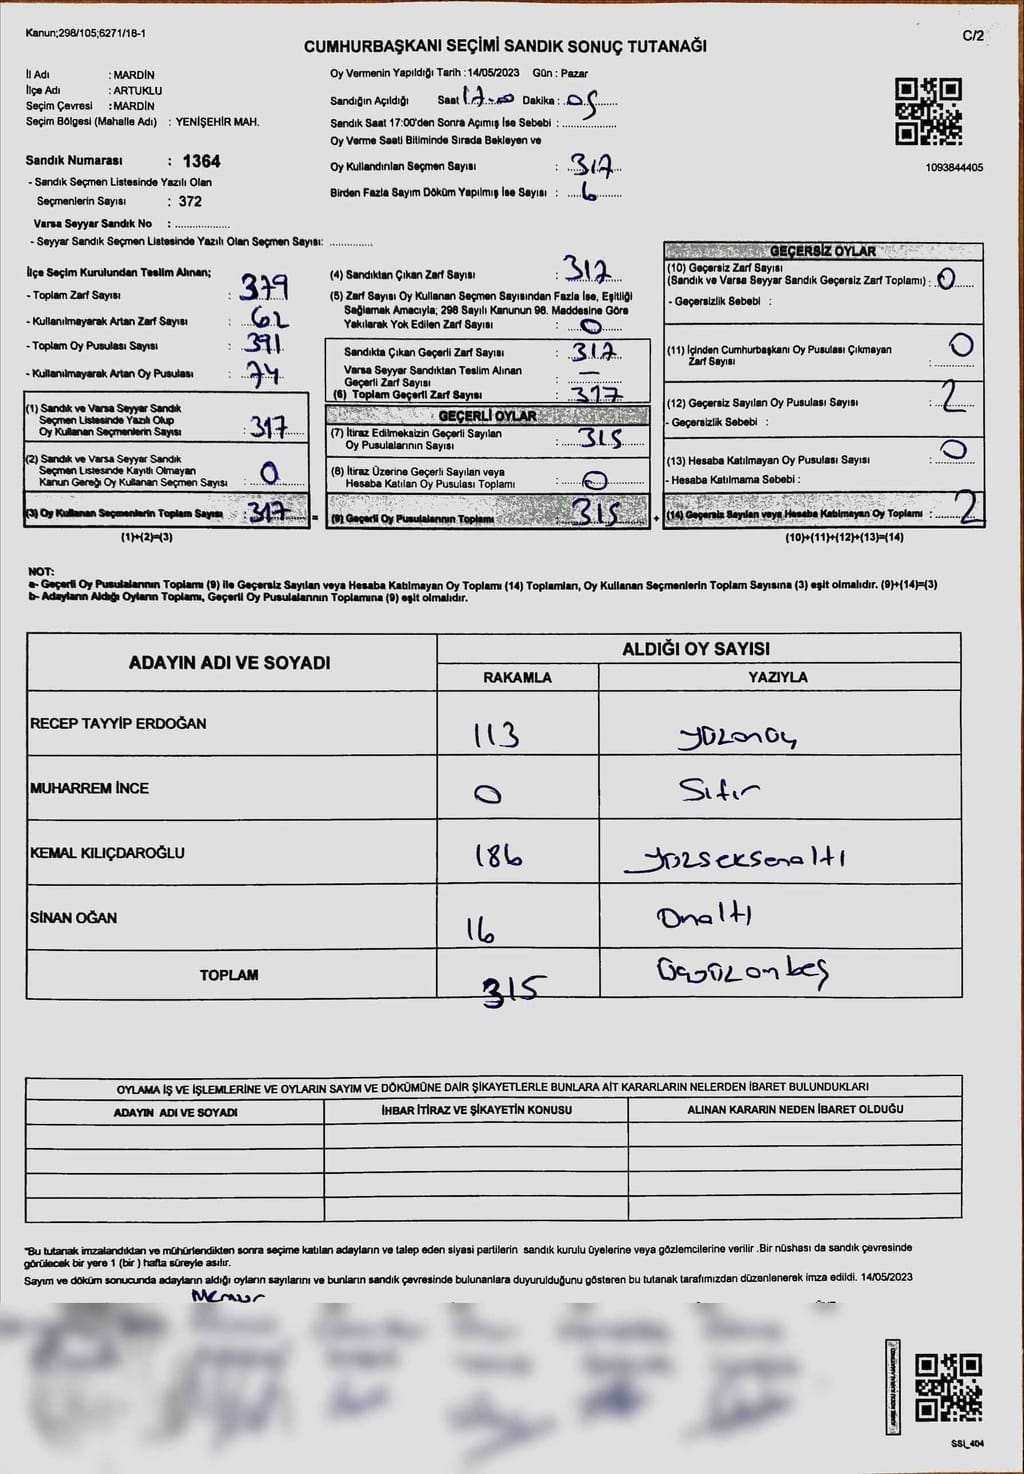 Kanun;298/105;6271/18-1
C/2
CUMHURBAŞKANI SEÇİMİ SANDIK SONUÇ TUTANAĞI
İl Adı : MARDİN
İlçe Adı : ARTUKLU
Seçim Çevresi : MARDİN
Seçim Bölgesi (Mahalle Adı) : YENİŞEHİR MAH.
Sandık Numarası : 1364
- Sandık Seçmen Listesinde Yazılı Olan
Seçmenlerin Sayısı : 372
Varsa Seyyar Sandık No : ..................
- Seyyar Sandık Seçmen Listesinde Yazılı Olan Seçmen Sayısı: ..............
Oy Vermenin Yapıldığı Tarih : 14/05/2023 Gün : Pazar
Sandığın Açıldığı Saat 17:00 Dakika : 05
Sandık Saat 17:00'den Sonra Açımış İse Sebebi : ..................
Oy Verme Saati Bitiminde Sırada Bekleyen ve
Oy Kullandırılan Seçmen Sayısı : 317
Birden Fazla Sayım Döküm Yapılmış İse Sayısı : 6
1093844405
İlçe Seçim Kurulundan Teslim Alınan;
- Toplam Zarf Sayısı : 379
- Kullanılmayarak Artan Zarf Sayısı : 62
- Toplam Oy Pusulası Sayısı : 391
- Kullanılmayarak Artan Oy Pusulası : 74
(1) Sandık ve Varsa Seyyar Sandık
Seçmen Listesinde Yazılı Olup
Oy Kullanan Seçmenlerin Sayısı : 317
(2) Sandık ve Varsa Seyyar Sandık
Seçmen Listesinde Kayıtlı Olmayan
Kanun Gereği Oy Kullanan Seçmen Sayısı : 0
(3) Oy Kullanan Seçmenlerin Toplam Sayısı 317 =
(1)+(2)=(3)
(4) Sandıktan Çıkan Zarf Sayısı : 317
(5) Zarf Sayısı Oy Kullanan Seçmen Sayısından Fazla İse, Eşitliği
Sağlamak Amacıyla; 298 Sayılı Kanunun 98. Maddesine Göre
Yakılarak Yok Edilen Zarf Sayısı : 0
Sandıkta Çıkan Geçerli Zarf Sayısı : 317
Varsa Seyyar Sandıktan Teslim Alınan
Geçerli Zarf Sayısı : —
(6) Toplam Geçerli Zarf Sayısı : 317
GEÇERLİ OYLAR
(7) İtiraz Edilmeksizin Geçerli Sayılan
Oy Pusulalarının Sayısı : 315
(8) İtiraz Üzerine Geçerli Sayılan veya
Hesaba Katılan Oy Pusulası Toplamı : 0
(9) Geçerli Oy Pusulalarının Toplamı : 315 +
GEÇERSİZ OYLAR
(10) Geçersiz Zarf Sayısı
(Sandık ve Varsa Seyyar Sandık Geçersiz Zarf Toplamı) : 0
- Geçersizlik Sebebi :
(11) İçinden Cumhurbaşkanı Oy Pusulası Çıkmayan
Zarf Sayısı : 0
(12) Geçersiz Sayılan Oy Pusulası Sayısı : 2
- Geçersizlik Sebebi :
(13) Hesaba Katılmayan Oy Pusulası Sayısı : 0
- Hesaba Katılmama Sebebi :
(14) Geçersiz Sayılan veya Hesaba Katılmayan Oy Toplamı : 2
(10)+(11)+(12)+(13)=(14)
NOT:
a- Geçerli Oy Pusulalarının Toplamı (9) ile Geçersiz Sayılan veya Hesaba Katılmayan Oy Toplamı (14) Toplamları, Oy Kullanan Seçmenlerin Toplam Sayısına (3) eşit olmalıdır. (9)+(14)=(3)
b- Adayların Aldığı Oyların Toplamı, Geçerli Oy Pusulalarının Toplamına (9) eşit olmalıdır.
ADAYIN ADI VE SOYADI ALDIĞI OY SAYISI
RAKAMLA YAZIYLA
RECEP TAYYİP ERDOĞAN 113
MUHARREM İNCE 0 Sıfır
KEMAL KILIÇDAROĞLU 186 yüzseksenaltı
SİNAN OĞAN 16 Onaltı
TOPLAM 315 Üçyüzonbeş
OYLAMA İŞ VE İŞLEMLERİNE VE OYLARIN SAYIM VE DÖKÜMÜNE DAİR ŞİKAYETLERLE BUNLARA AİT KARARLARIN NELERDEN İBARET BULUNDUKLARI
ADAYIN ADI VE SOYADI İHBAR İTİRAZ VE ŞİKAYETİN KONUSU ALINAN KARARIN NEDEN İBARET OLDUĞU
*Bu tutanak imzalandıktan ve mühürlendikten sonra seçime katılan adayların ve talep eden siyasi partilerin sandık kurulu üyelerine veya gözlemcilerine verilir .Bir nüshası da sandık çevresinde
görülecek bir yere 1 (bir ) hafta süreyle asılır.
Sayım ve döküm sonucunda adayların aldığı oyların sayılarını ve bunların sandık çevresinde bulunanlara duyurulduğunu gösteren bu tutanak tarafımızdan düzenlenerek imza edildi. 14/05/2023
Memur
SSI_404